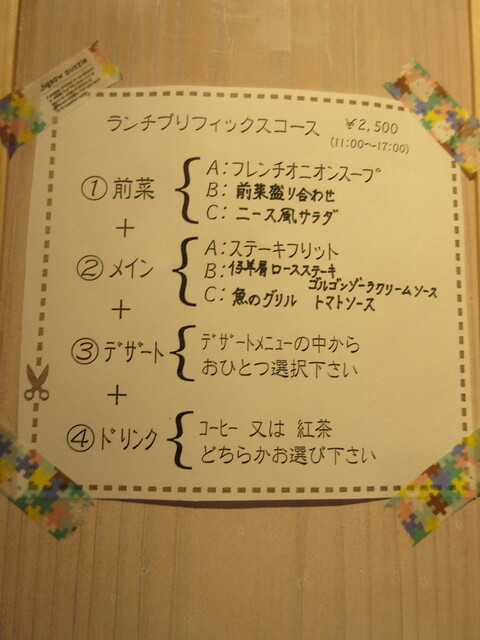 Jigsaw puzzle
ランチプリフィックスコース ￥2,500
(11:00〜17:00)
① 前菜
A:フレンチオニオンスープ
B:前菜盛り合わせ
C:ニース風サラダ
+
② メイン
A:ステーキフリット
B:仔羊肩ロースステーキ
ゴルゴンゾーラクリームソース
C:魚のグリル トマトソース
+
③ デザート
デザートメニューの中から
おひとつ選択下さい
+
④ ドリンク
コーヒー 又は 紅茶
どちらかお選び下さい